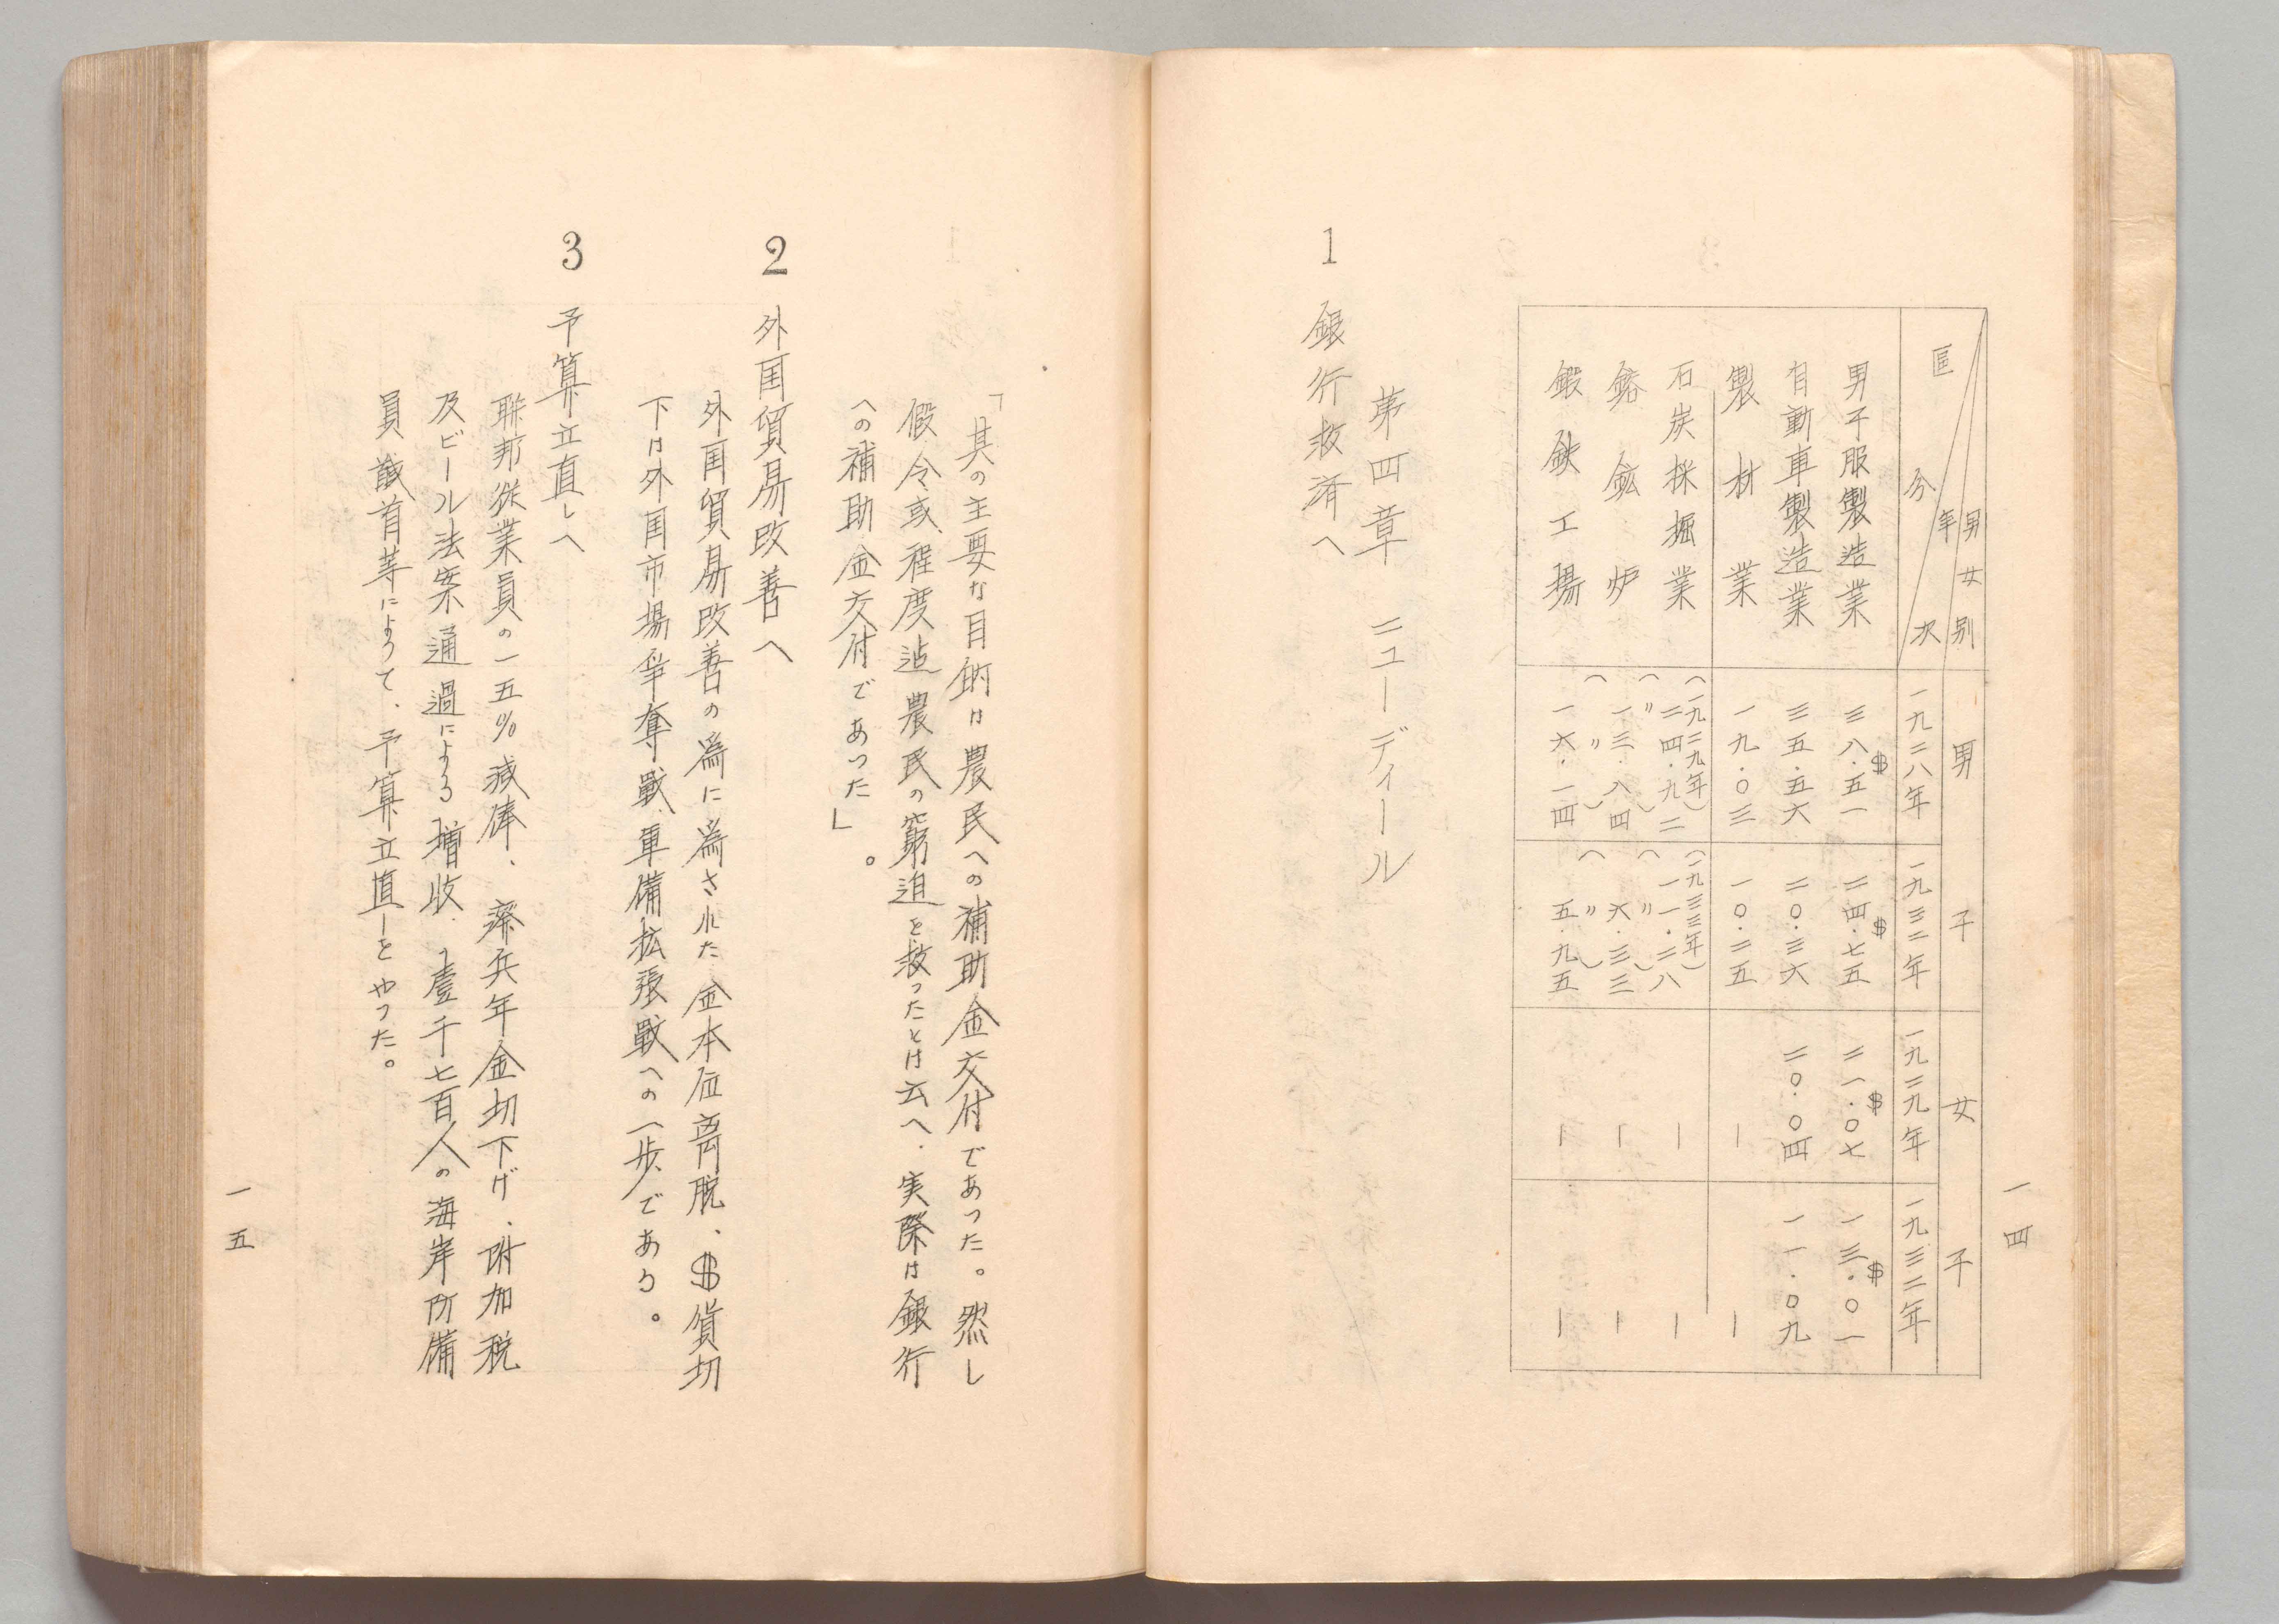 一四
區分 年次 男女別
男子
女子
一九二八年
一九三二年
一九二九年
一九三二年
男子服製造業 三八・五一$ 二四・七五$ 二一・〇七$ 一三・〇一$
自動車製造業 三五・五六 二〇・三六 二〇・〇四 一一・〇九
製材業 一九・〇三 一〇・二五 ー ー
(一九二九年) (一九三三年)
石炭採掘業 二四・九二 一一・二八 ー ー
( 〃 ) ( 〃 )
鎔鉱炉 一三・八四 六・三三 ー ー
( 〃 ) ( 〃 )
鍛鉄工場 一六・一四 五・九五 ー ー
第四章 ニューディール
1 銀行救済へ
「其の主要な目的は農民への補助金交付であつた。然し
假令或程度迄農民の窮迫を救つたとは云へ、実際は銀行
への補助金交付であつた」。
2 外国貿易改善へ
外国貿易改善の為に為された金本位離脱、$貨切
下は外国市場争奪戰、軍備拡張戰への一歩である。
3 予算立直しへ
聯邦従業員の一五%減俸、癈兵年金切下げ、附加税
及ビール法案通過による増收、壹千七百人の海岸防備
員馘首等によつて、予算立直しをやつた。
一五